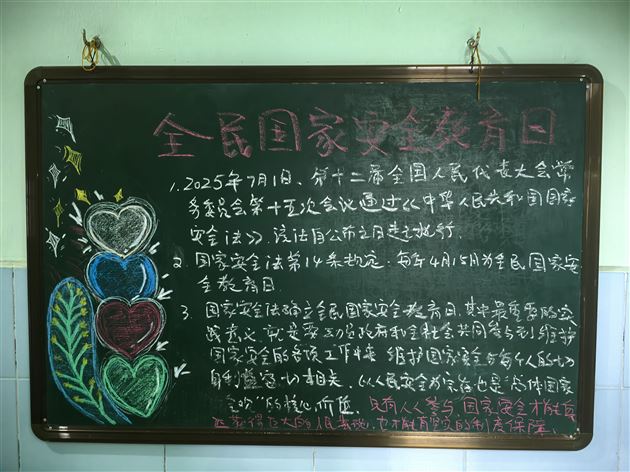 全民国家安全教育日
1、2025年7月1日、第十二届全国人民代表大会常
务委员会第十五次会议通过《中华人民共和国国家
安全法》,该法自公布之日起施行.
2、国家安全法第14条规定:每年4月15日为全民国家安
全教育日
3、国家安全法确立全民国家安全教育日,其中最重要的实
践意义,就是要政府和全社会共同参与到维护
国家安全的各项工作中 维护国家安全与每个人的切
身利益密切相关,以人民安全为宗旨也是"总体国家
全观"的核心价值 只有人人参与,国家安全才能
获得广大的 ,才能有坚实的制度保障.